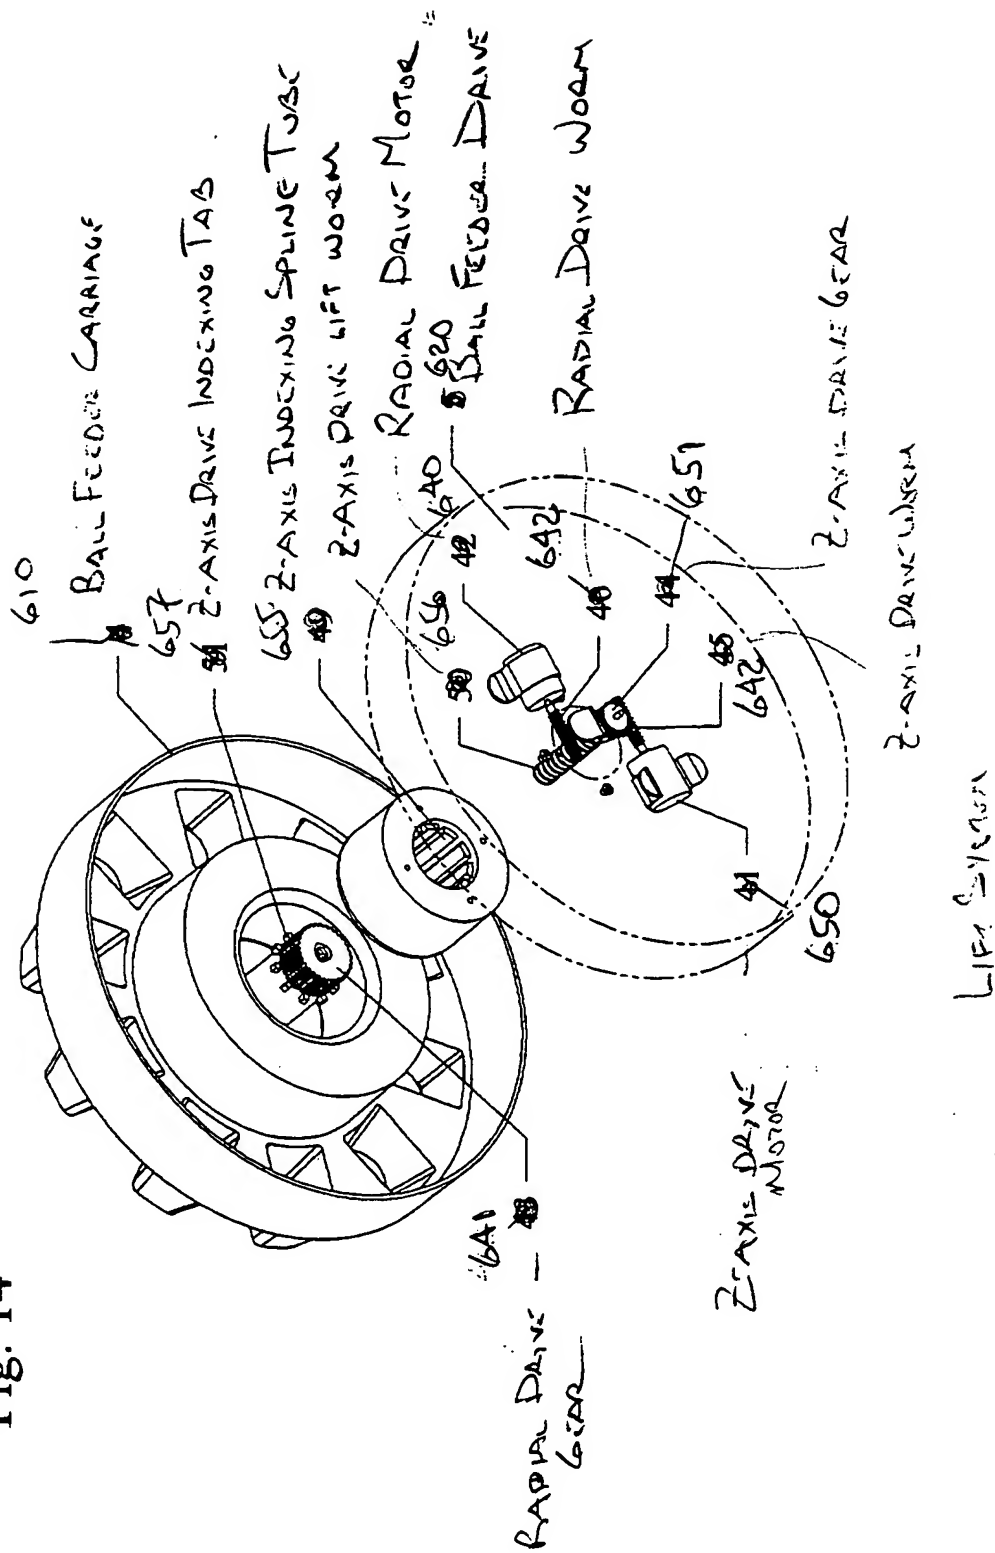 Fig. 14
610
BALL FEEDER CARRIAGE
657
Z-AXIS DRIVE INDEXING TAB
655
Z-AXIS INDEXING SPLINE TUBE
49
Z-AXIS DRIVE LIFT WORM
656
50
RADIAL DRIVE MOTOR
640
42
620
BALL FEEDER DRIVE
642
RADIAL DRIVE WORM
651
44
Z-AXIS DRIVE GEAR
45
642
Z-AXIS DRIVE WORM
41
650
Z-AXIS DRIVE
MOTOR
641
RADIAL DRIVE
GEAR
LIFT SYSTEM